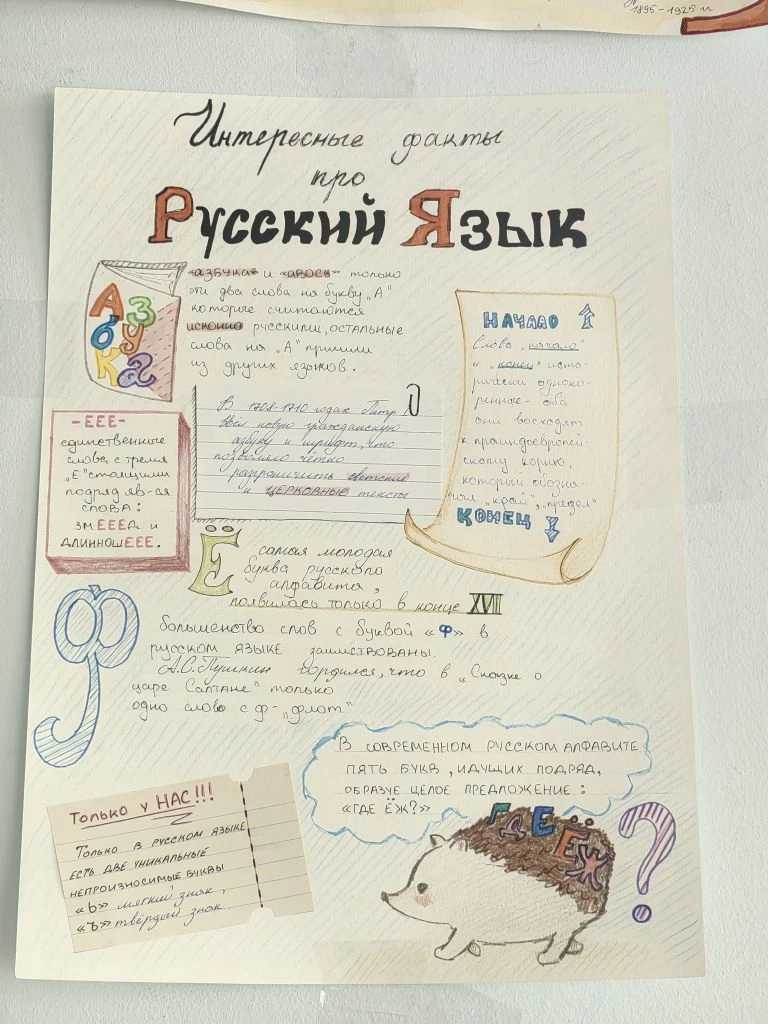 1895-1925 гг
Интересные факты
про
Русский Язык
Азбука
"азбука" и "авось" только
эти два слова на букву „А"
которые считаются
исконно русскими, остальные
слова на „А" пришли
из других языков.
НАЧАЛО
Слова „начало"
и „конец" исто-
рически одноко-
ренные - оба
они восходят
к праиндоевропей-
скому корню,
который обозна-
чал „край", „предел"
КОНЕЦ
В 1708-1710 годах Пётр I
ввёл новую гражданскую
азбуку и шрифт, что
позволяло чётко
разграничить светские
и ЦЕРКОВНЫЕ тексты
-ЕЕЕ-
единственные
слова, с тремя
„Е" стоящими
подряд яв-ся
слова:
змЕЕЕд и
длинношЕЕЕ.
Ё самая молодая
буква русского
алфавита,
появилась только в конце XVII
Ф
большенство слов с буквой «Ф» в
русском языке заимствованы.
А.С.Пушкин гордился, что в „Сказке о
царе Салтане" только
одно слово с ф-„флот"
В СОВРЕМЕННОМ РУССКОМ АЛФАВИТЕ
ПЯТЬ БУКВ, ИДУЩИХ ПОДРЯД,
ОБРАЗУЕ ЦЕЛОЕ ПРЕДЛОЖЕНИЕ:
«ГДЕ ЁЖ?»
ГДЕ ЁЖ ?
Только у НАС!!!
Только в русском языке
есть две уникальные
непроизносимые буквы
«Ь» мягкий знак,
«Ъ» твёрдый знак.